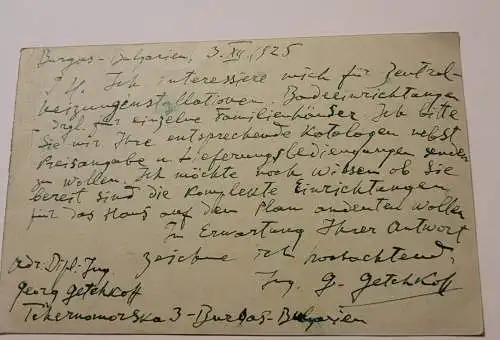 Burgas - Bulgarien, 3. XII. 1925
P. H. Ich interessiere mich für Zentral-
heizungenstallationen. Badeeinrichtungen
drgl. für einzelne Familienhäuser. Ich bitte
Sie mir Ihre entsprechende Katalogen nebst
Preisangabe u Lieferungsbediengungen senden
zu wollen. Ich möchte noch wissen ob Sie
bereit sind die komplekte Einrichtungen
für das Haus auf den Plan andeuten wollen
In Erwartung Ihrer Antwort
zeichne ich hochachtend,
Adr: Dipl. Ing. Ing. G. Getchkoff
Georg Getchkoff
Tchernomorska 3 - Burgas - Bulgarien